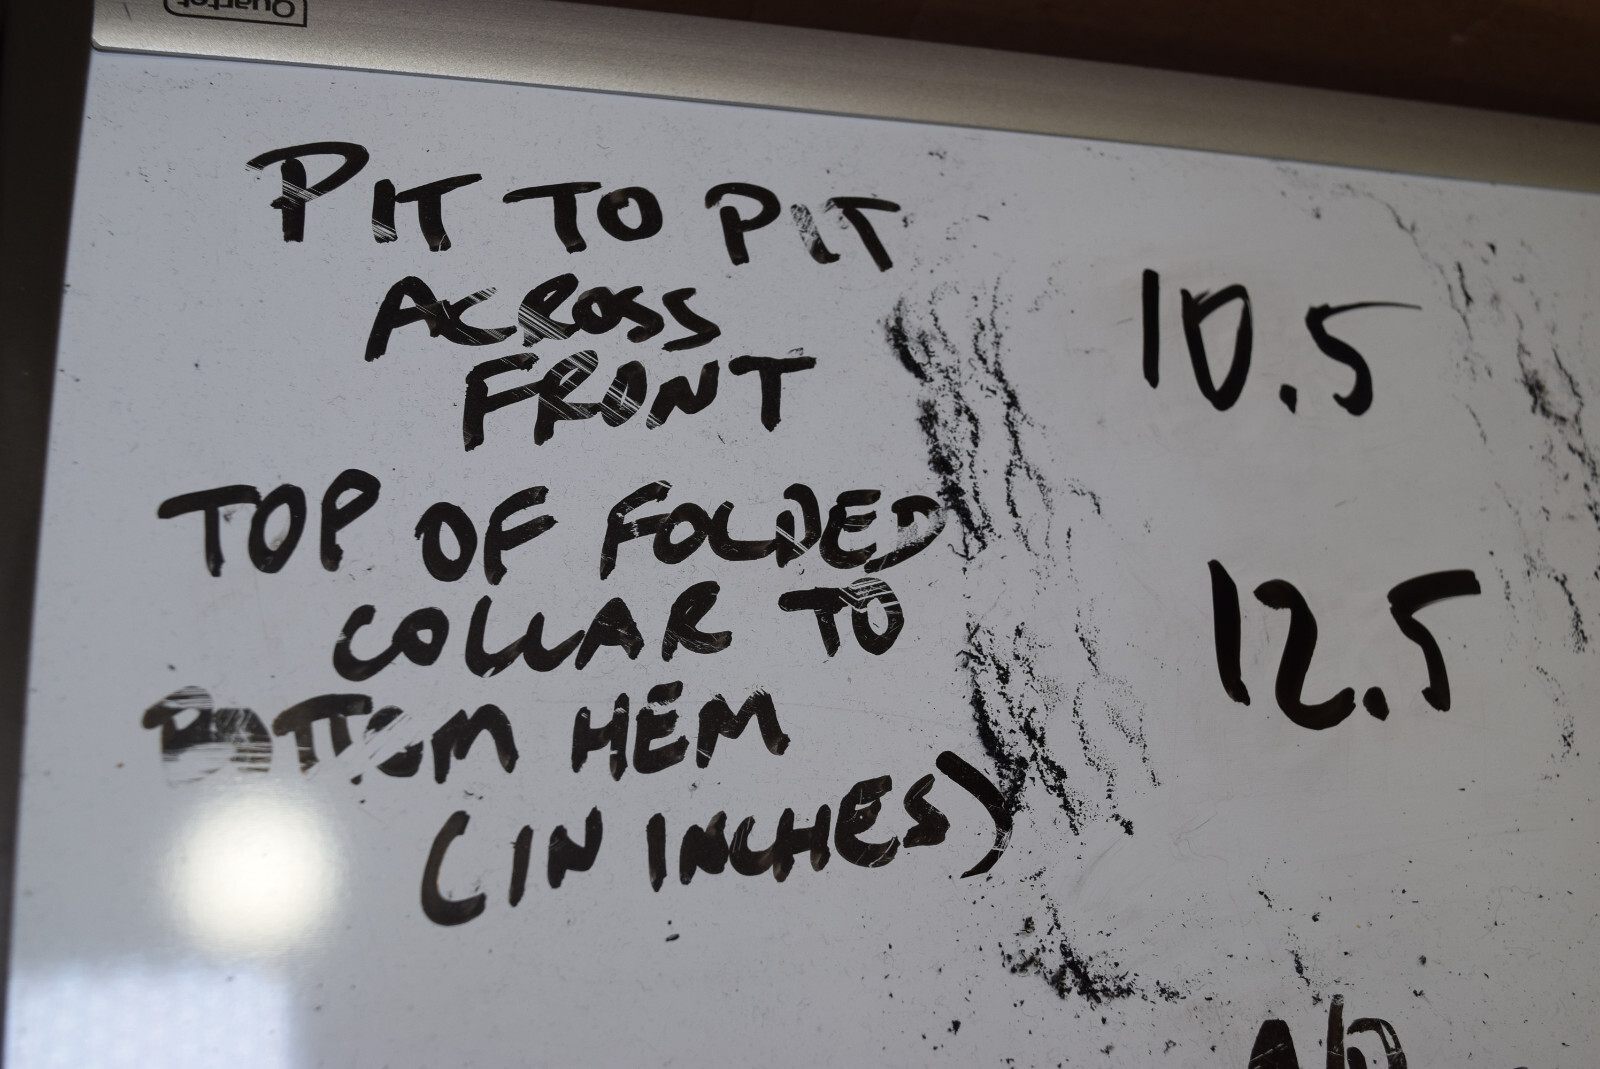 Quartet
PIT TO PIT
ACROSS
FRONT
10.5
TOP OF FOLDED
COLLAR TO
BOTTOM HEM
(IN INCHES)
12.5